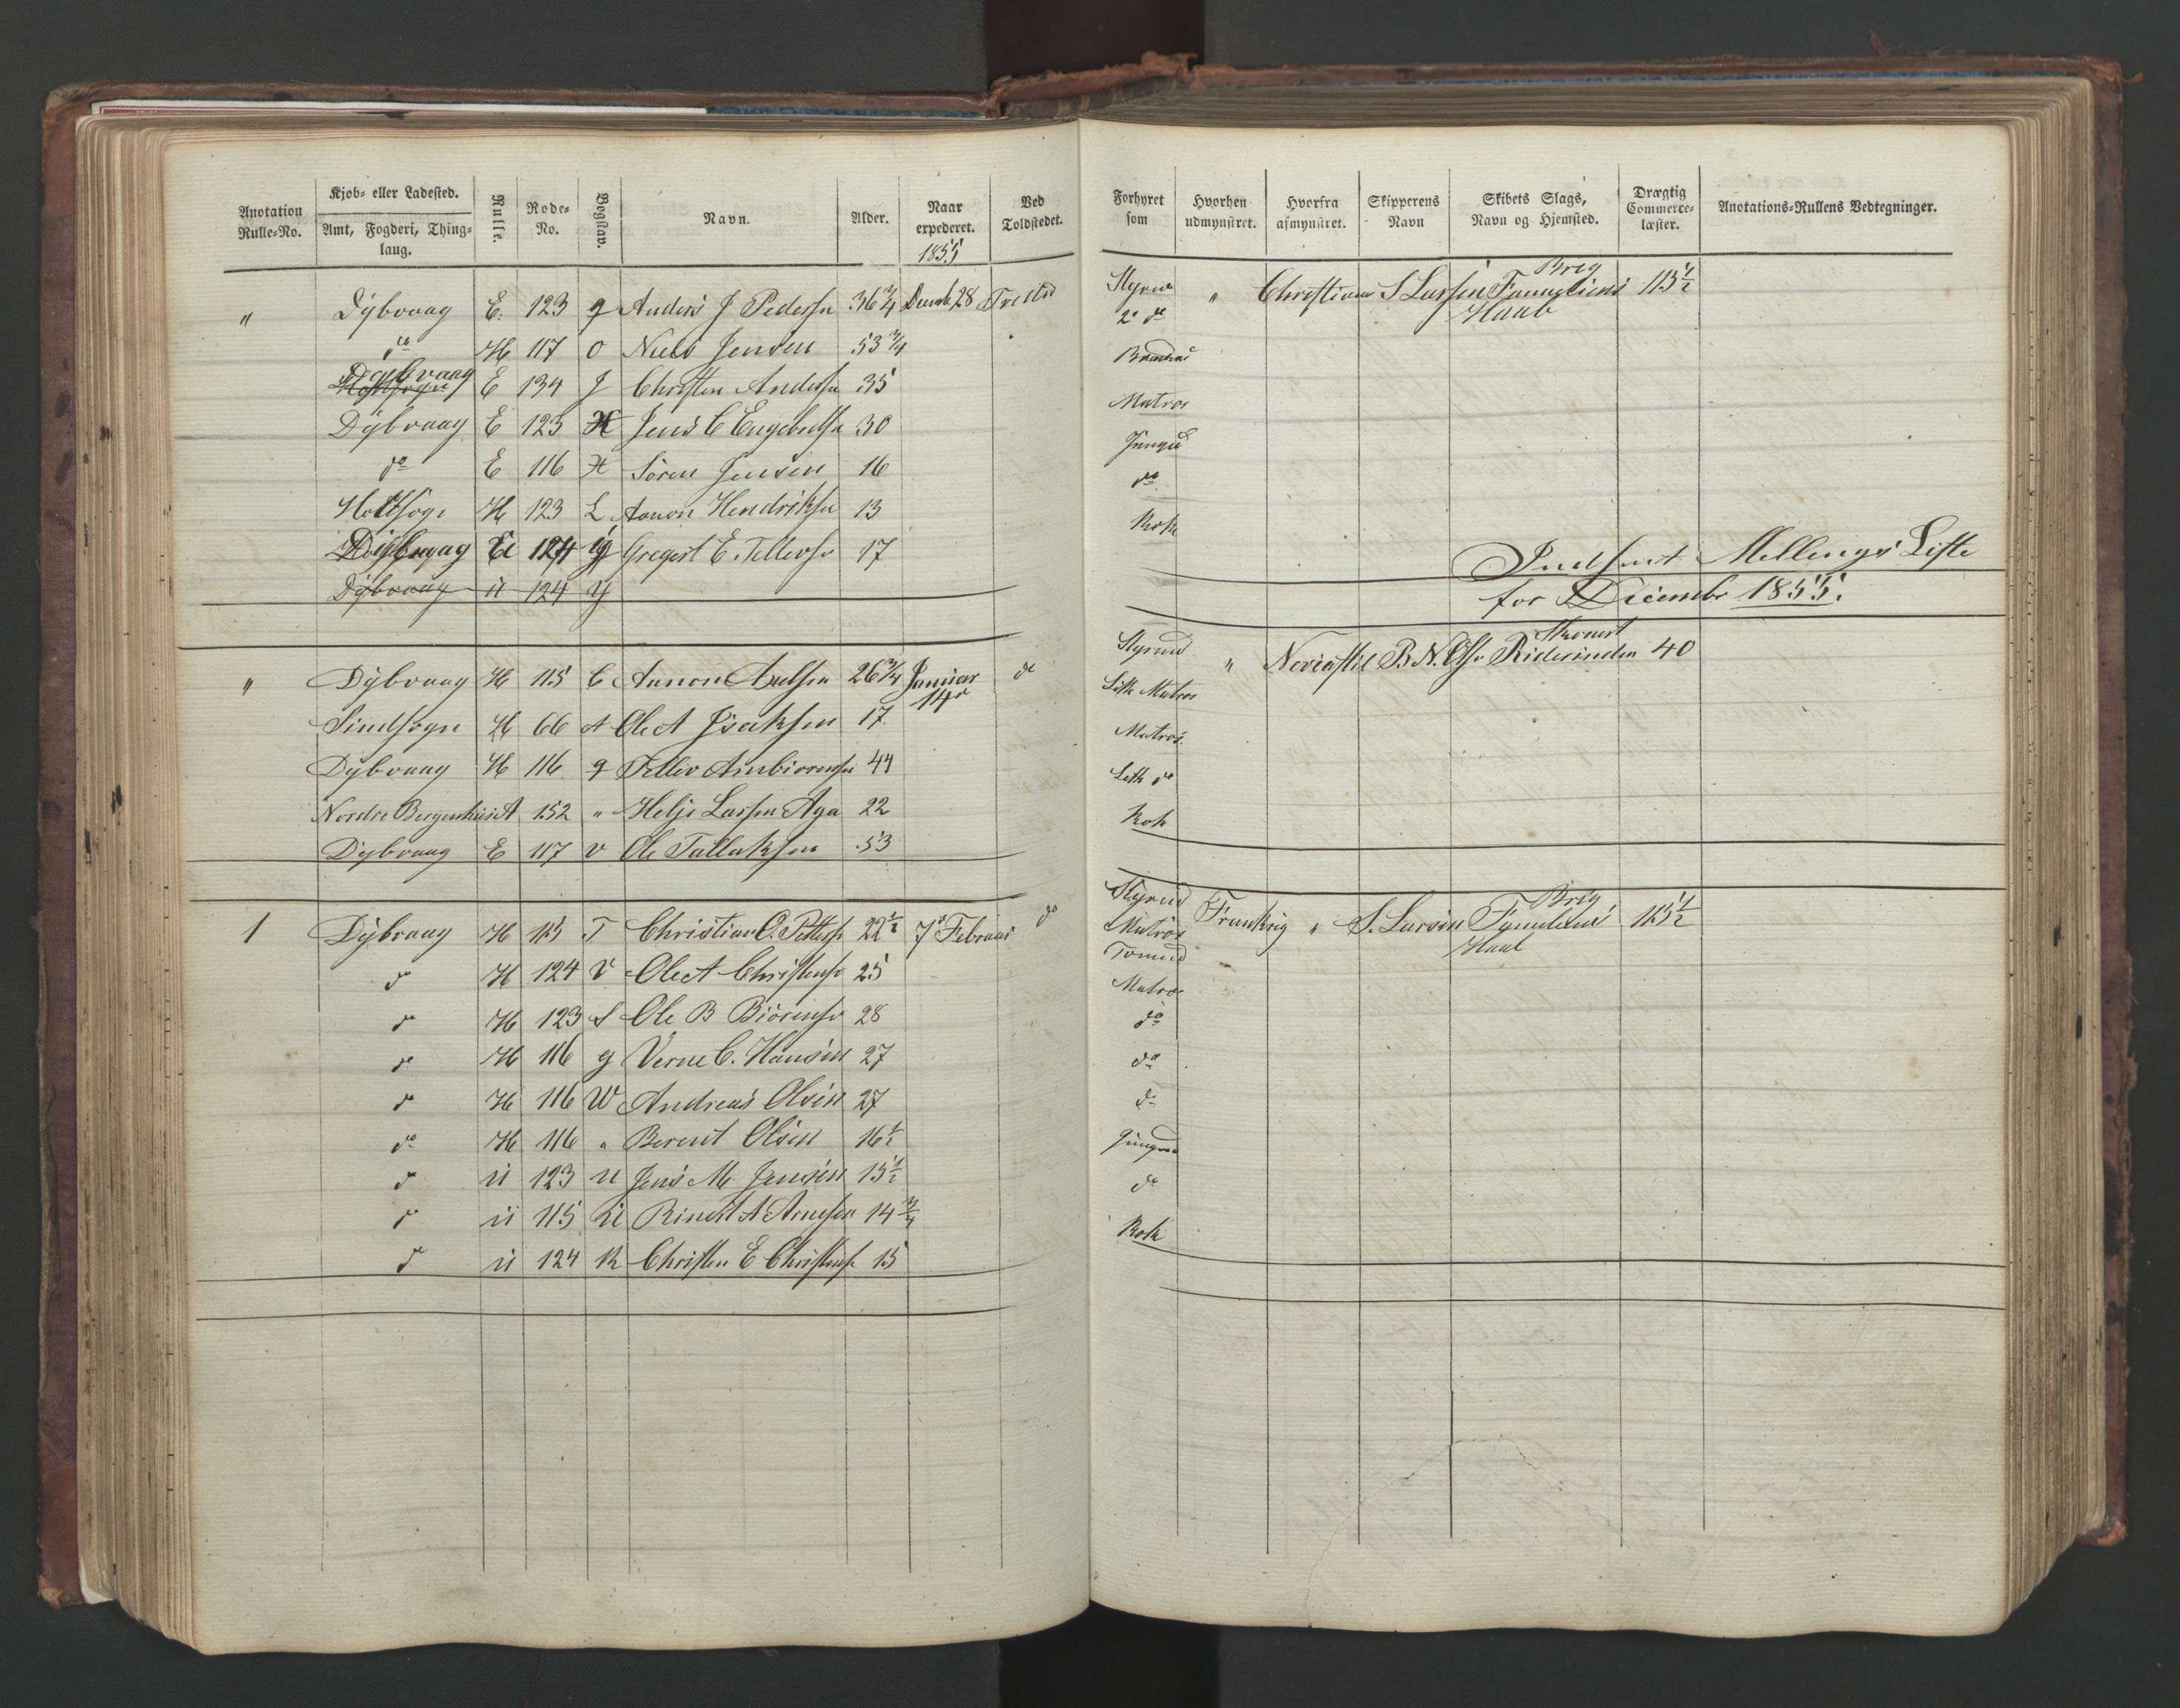 Anotation Rulle-No. Kjøb- eller Ladested. Amt, Fogderi, Thinglaug. Rulle. Rode-No. Bogstav. Navn. Alder. Naar expederet. 1855 Ved Toldstedet.
" Dybvaag E. 123 g Anders J Pedersen 36 3/4 28
do H 117 O Niels Jensen 53 3/4
Dybvaag E 134 J Christen Andersen 35
Dybvaag E 123 H Jens C Engebretsen 30
do E 116 H Sören Jensen 16
Holtsogn H 123 L Aanon Hendriksen 13
Dybvaag 124 Gregert E. Tellevse 17
Dybvaag ü 124 y
" Dybvaag H 115 C Aanon Axelsen 26 3/4 Januar 14 do
H 66 A Ole A Jsaksen 17
Dybvaag H 116 g Tellev 44
Nordre Bergenhus A 152 " Helje Larsen Aga 22
Dybvaag E 117 v Ole Tallaksen 53
1 Dybvaag H 115 T Christian O. Petterse 22 1/2 7de Februar do
do H 124 V Ole A Christense 25
do H 123 S Ole B Biörense 28
do H 116 g Verne C. Hansen 27
do H 116 W Andreas Olsen 27
do H 116 " Berent Olsen 16 1/2
do ü 123 u Jens M Jensen 15 1/2
do ü 115 Arnesen 14 3/4
do ü 124 K Christen E Christense 15
Forhyret som Hvorhen udmynstret. Hvorfra afmynstret. Skipperens Navn Skibets Slags, Navn og Hjemsted. Drægtig Commerce-læster. Anotations-Rullens Vedtegninger.
Styrm " Christiania S Larsen Brig Familiens Haab 115 1/2
2 do
Matros
Jungm
do
Kok
Indsent Mellings Liste
for Decembr 1855.
Styrmd " B N. Olse 40
Lett Matros
Matros.
Lett do
Kok
Styrmd Frankrig " S. Larsen Brig Familiens Haab 115 1/2
Matros
Tømmd
Matros
do
do
do
Jungmd
do
Kok